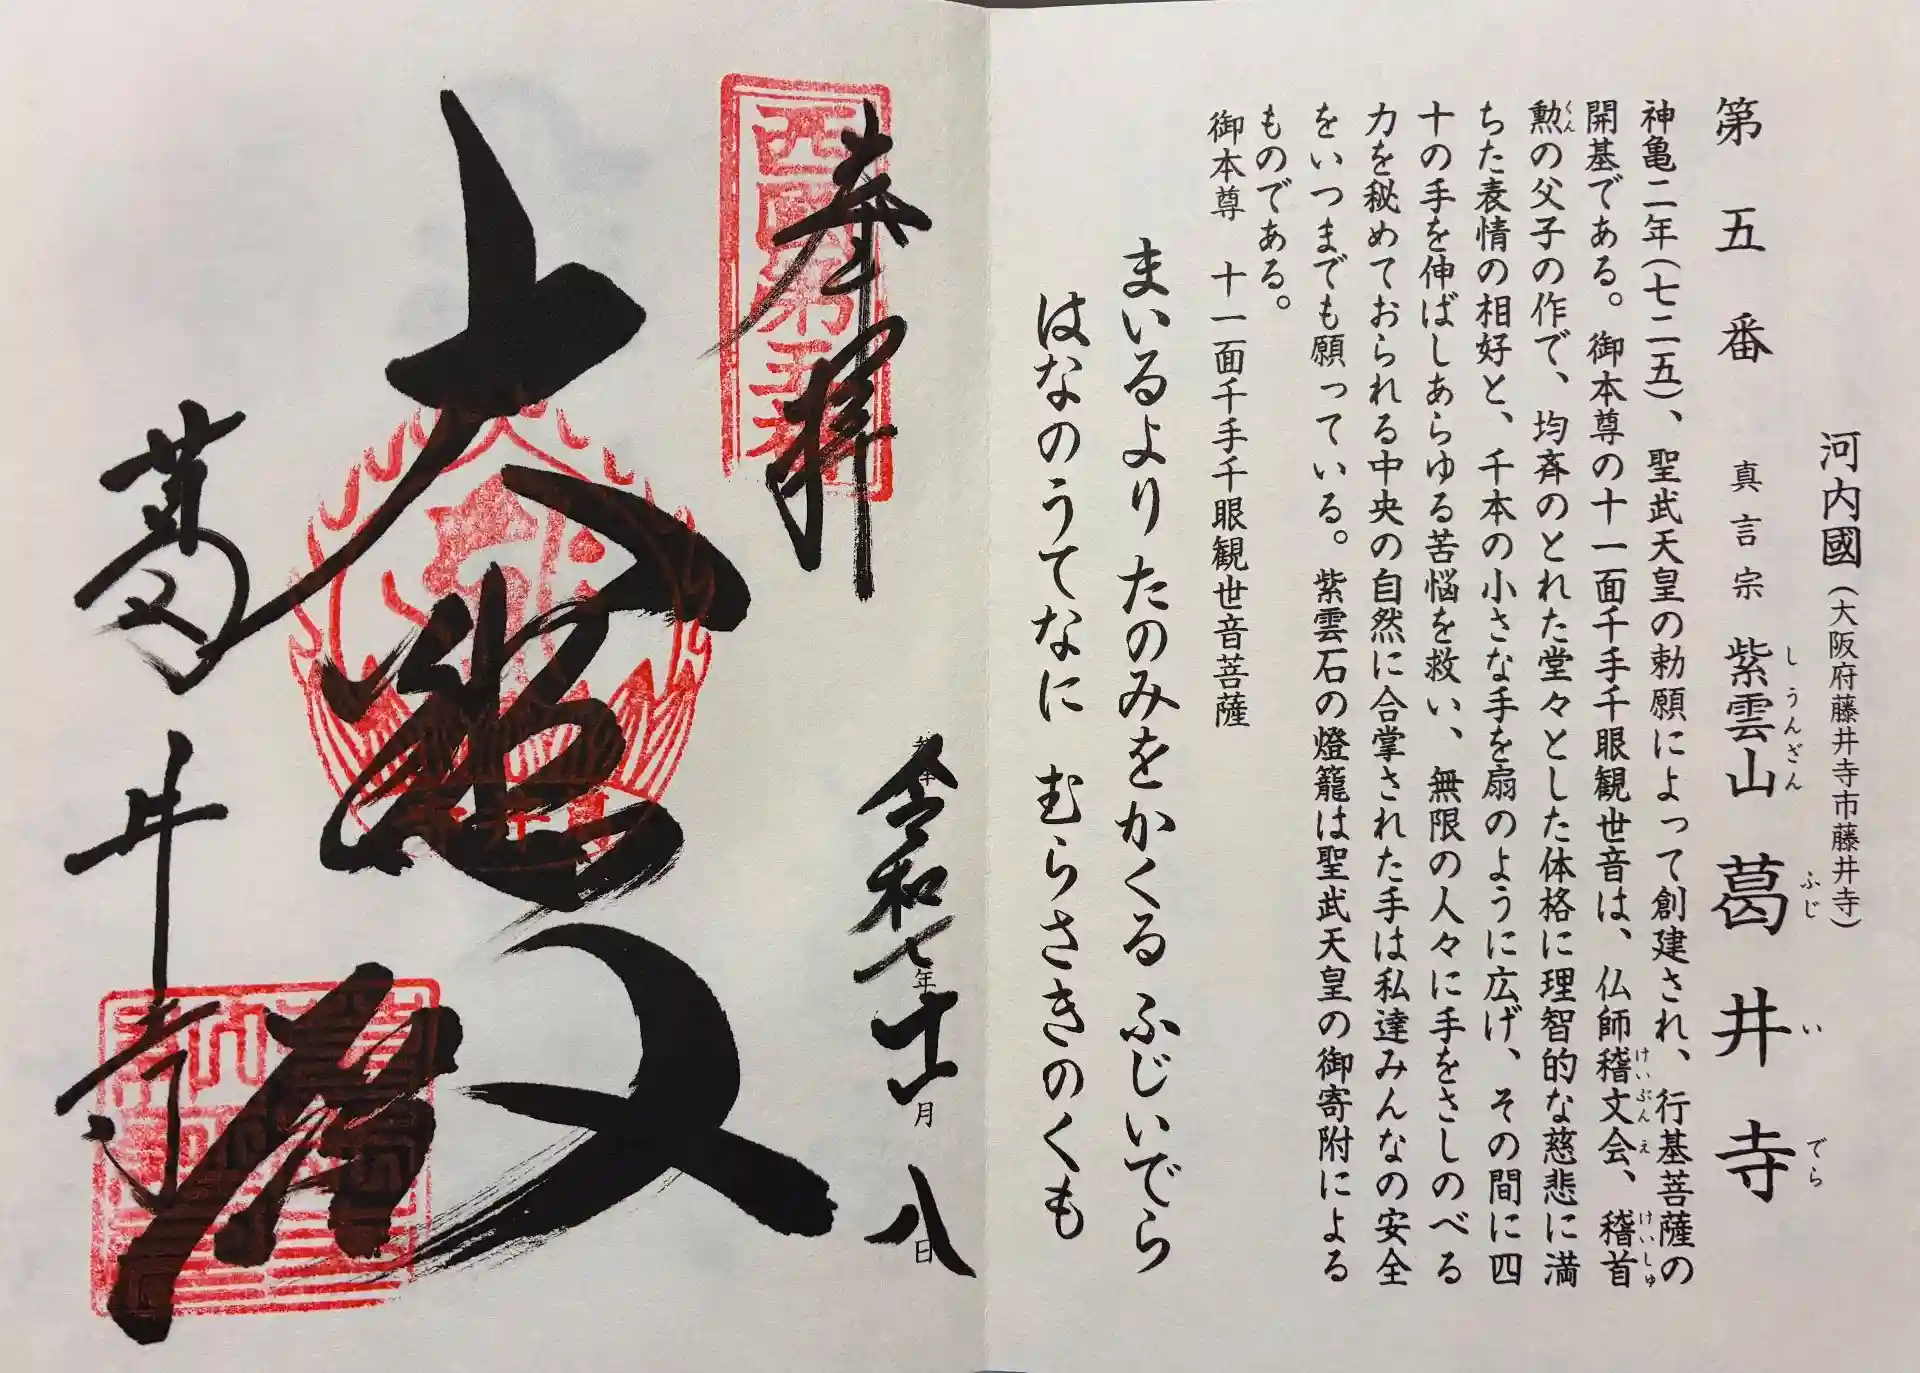 河内國(大阪府藤井寺市藤井寺)
第五番 真言宗 紫雲山 葛井寺
しうんざん ふじ い でら
神亀二年(七二五)、聖武天皇の勅願によって創建され、行基菩薩の
開基である。御本尊の十一面千手千眼観世音は、仏師稽文会、稽首
けいぶんえ けいしゅ
勲の父子の作で、均斉のとれた堂々とした体格に理智的な慈悲に満
くん
ちた表情の相好と、千本の小さな手を扇のように広げ、その間に四
十の手を伸ばしあらゆる苦悩を救い、無限の人々に手をさしのべる
力を秘めておられる中央の自然に合掌された手は私達みんなの安全
をいつまでも願っている。紫雲石の燈籠は聖武天皇の御寄附による
ものである。
御本尊 十一面千手千眼観世音菩薩
まいるより たのみをかくる ふじいでら
はなのうてなに むらさきのくも
奉拝
西国第五番
令和七年十一月八日
大悲殿
葛井寺